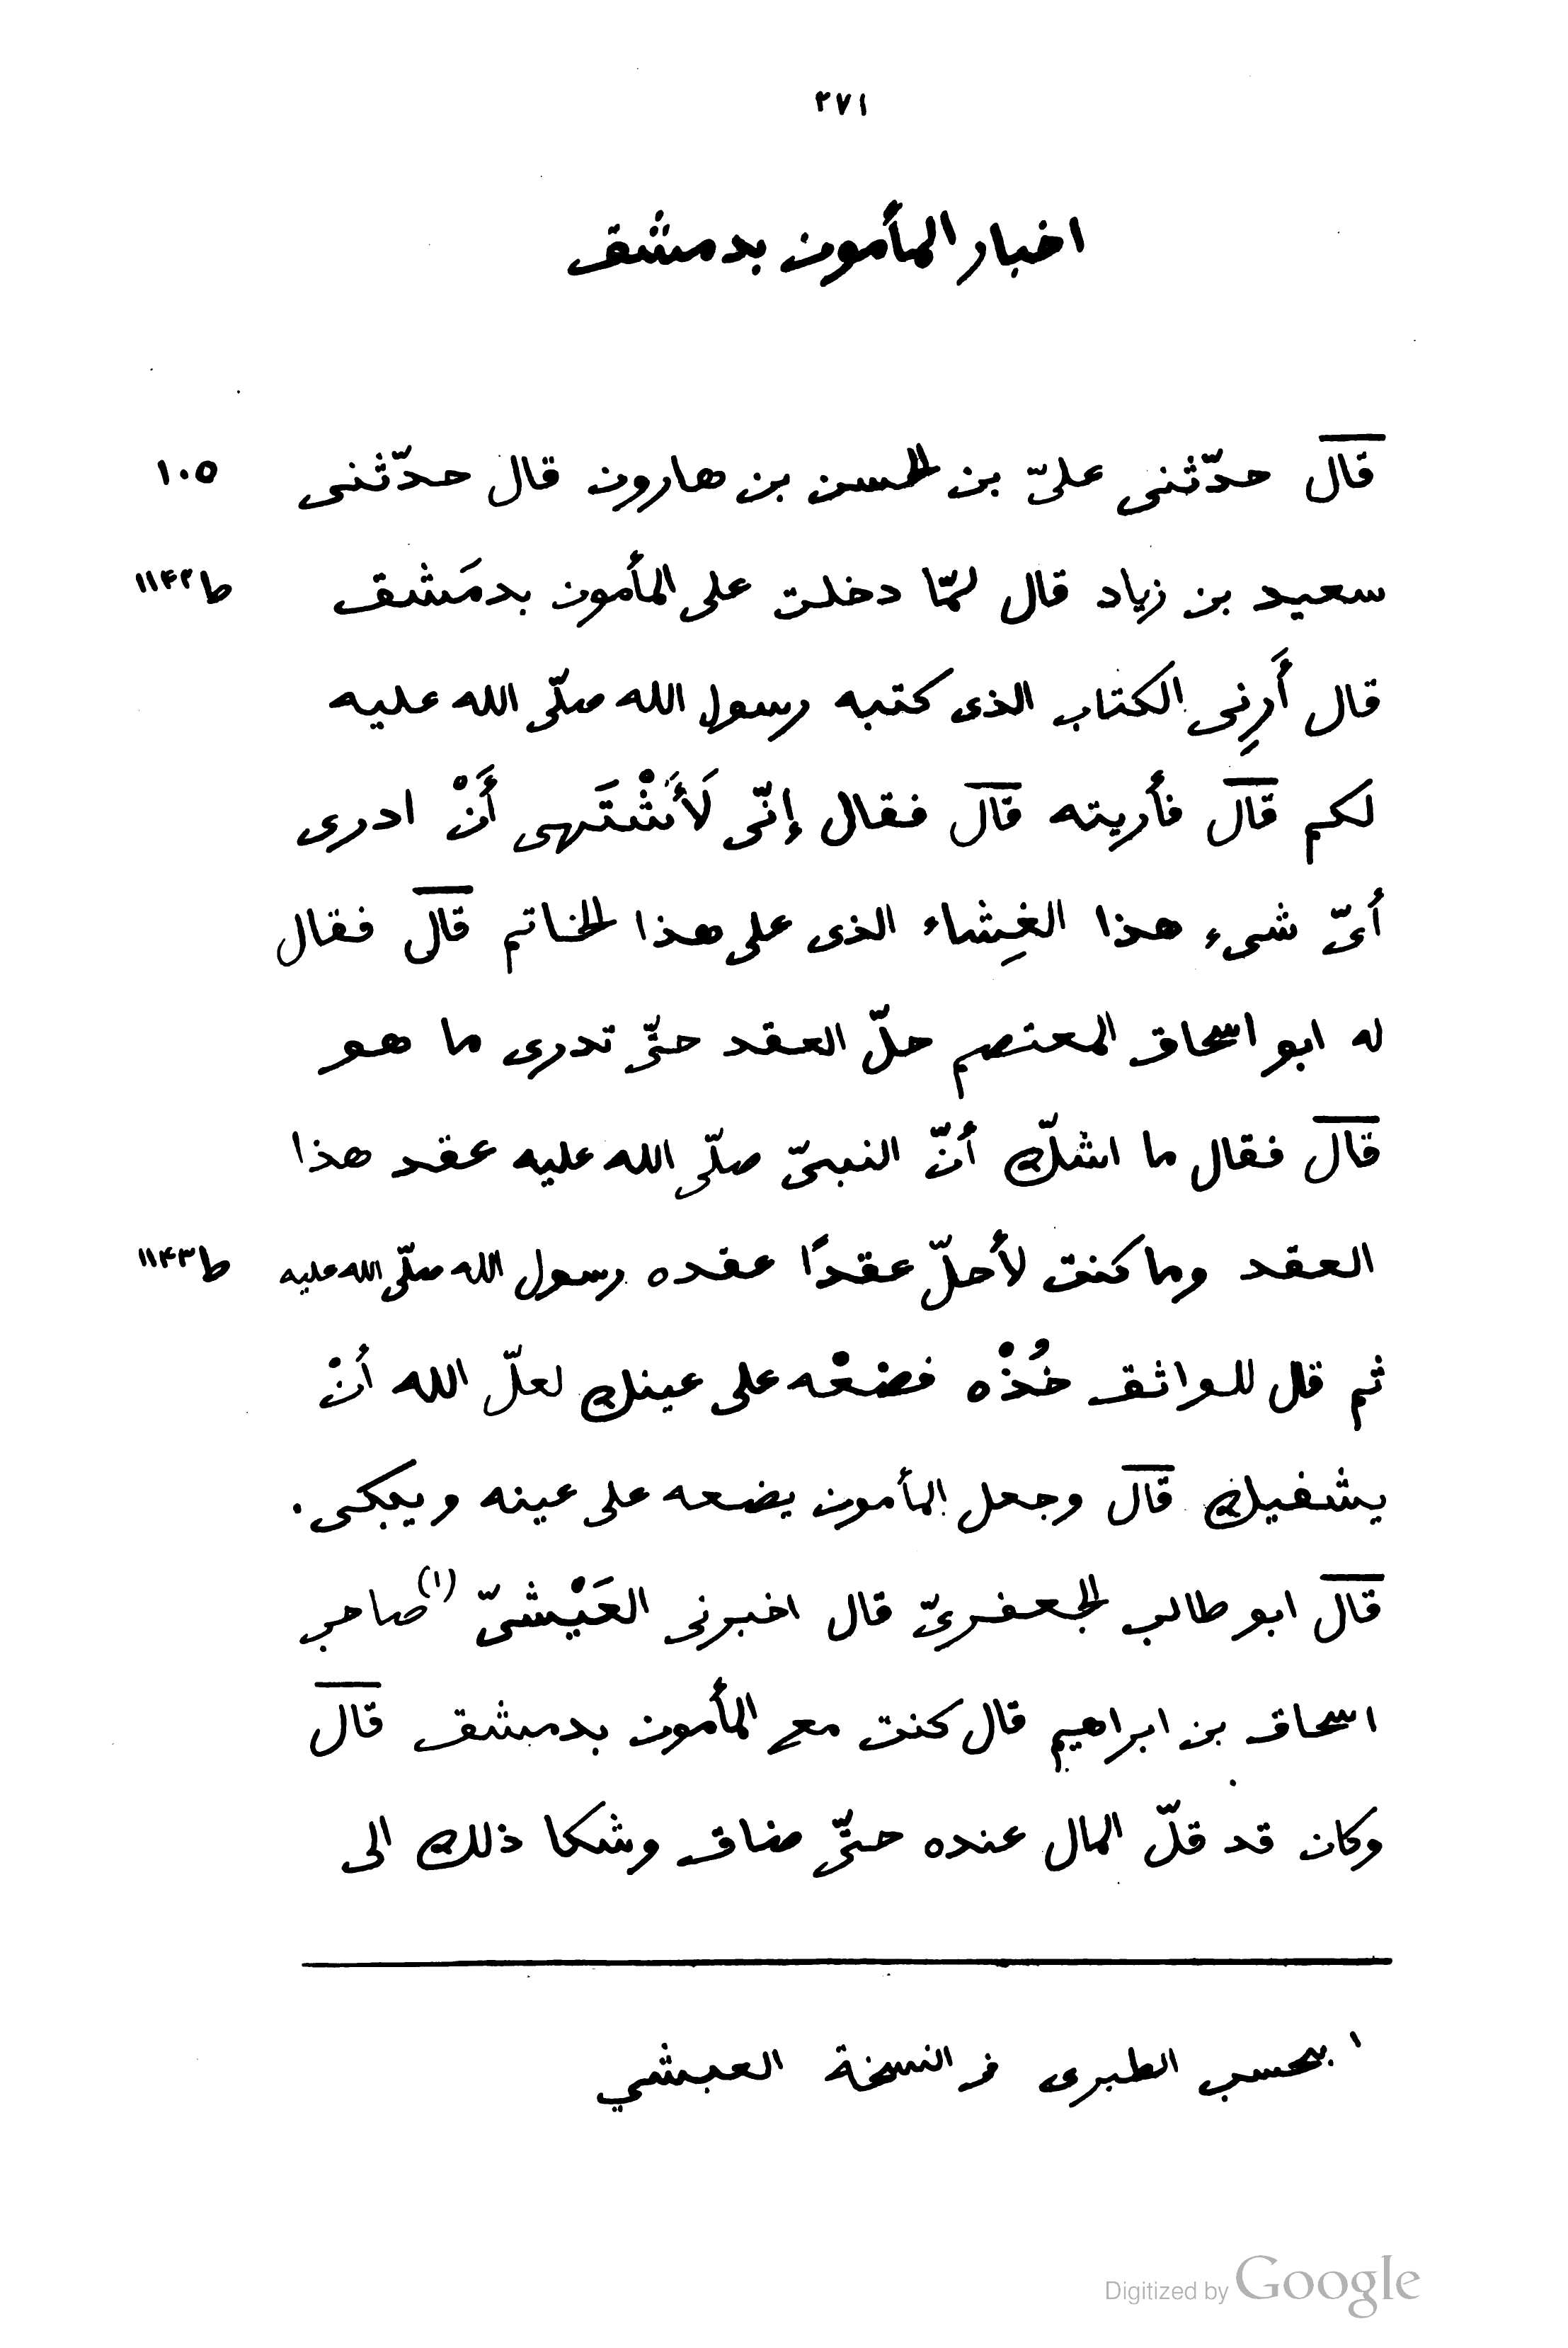 ٢٧١
اخبار المأمون بدمشق
قال حدّثنى علىّ بن الحسن بن هارون قال حدّثنى ١٠٥
سعيد بن زياد قال لمّا دخلت على المأمون بدمَشق ط١١٤٢
قال أَرِنى الكتاب الذى كتبه رسول الله صلّى الله عليه
لكم قال فأريته قال فقال إنّى لَأَشْتَهى أَنْ ادرى
أىّ شىء هذا الغِشاء الذى على هذا الخاتم قال فقال
له ابو اسحاق المعتصم حلّ العقد حتّى تدرى ما هو
قال فقال ما اشكّ أنّ النبىّ صلّى الله عليه عقد هذا
العقد وما كنت لأحلّ عقدًا عقده رسول الله صلّى الله عليه ط١١٤٣
ثم قال للواثق خُذْه فضعْه على عينك لعلّ الله أنْ
يشفيك قال وجعل المأمون يضعه على عينه ويبكى.
قال ابو طالب الجعفرىّ قال اخبرنى العَيْشىّ (١) صاحب
اسحاق بن ابراهيم قال كنت مع المأمون بدمشق قال
وكان قد قلّ المال عنده حتّى ضاق وشكا ذلك الى
١ بحسب الطبرى فى النسخة العبشي
Digitized by Google